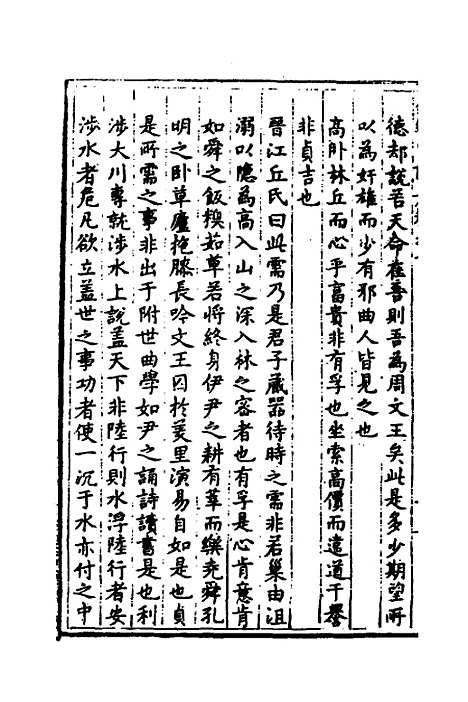 德却說若天命在吾則吾為周文王矣此是多少期望所
以為奸雄而少有邪曲人皆見之也
高卧林丘而心乎富貴非有孚也坐索高價而遠道干譽
非貞吉也
晉江丘氏曰此需乃是君子藏器待時之需非若巢由沮
溺以隱為高入山之深入林之密者也有孚是心肯意肯
如舜之飯糗茹草若將終身伊尹之耕有莘而樂堯舜孔
明之卧草廬抱膝長吟文王囚於羑里演易自如是也貞
是所需之事非出于附世曲學如尹之誦詩讀書是也利
涉大川專就涉水上說盖天下非陸行則水浮陸行者安
涉水者危凡欲立盖世之事功者使一沉于水亦付之中